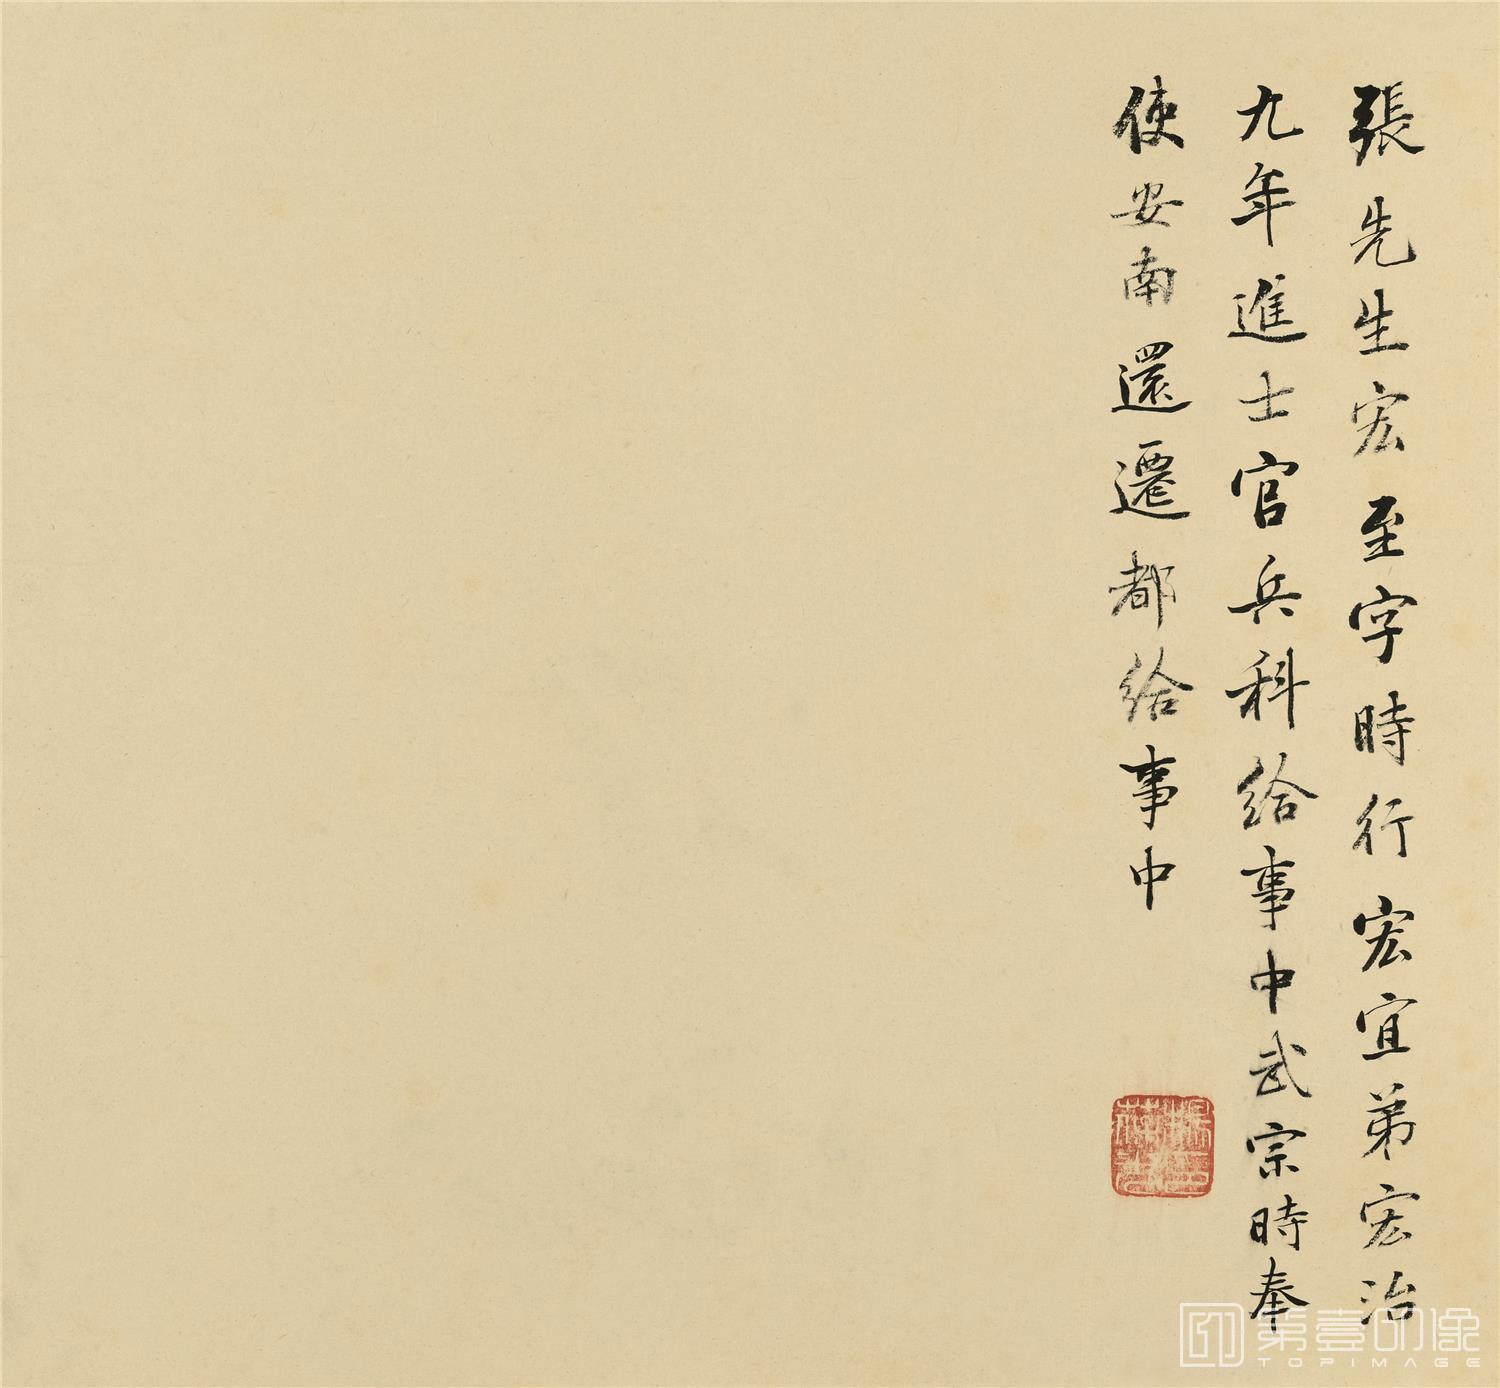 張先生宏至字時行宏宜弟宏治
九年進士官兵科給事中武宗時奉
使安南還遷都給事中
第壹印像
TOPIMAGE